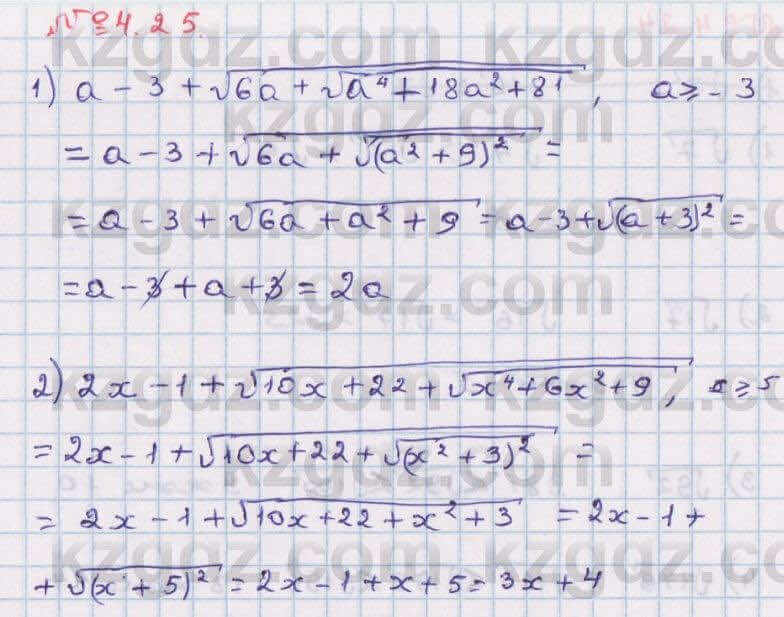 № 4.25.
1) a - 3 + √(6a + √(a⁴ + 18a² + 81)), a ≥ -3
= a - 3 + √(6a + √((a² + 9)²)) =
= a - 3 + √(6a + a² + 9) = a - 3 + √((a + 3)²) =
= a - 3 + a + 3 = 2a
2) 2x - 1 + √(10x + 22 + √(x⁴ + 6x² + 9)), x ≥ 5
= 2x - 1 + √(10x + 22 + √((x² + 3)²)) =
= 2x - 1 + √(10x + 22 + x² + 3) = 2x - 1 +
+ √((x + 5)²) = 2x - 1 + x + 5 = 3x + 4
kzgdz.com